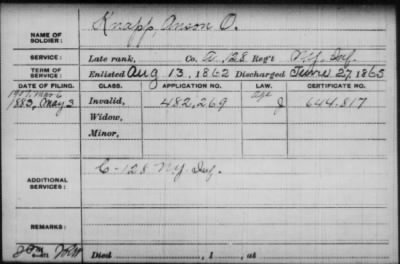 NAME OF SOLDIER: Knapp, Anson O.
SERVICE: Late rank, Co. A, 128 Reg't N.Y. Inf.
TERM OF SERVICE: Enlisted Aug 13, 1862 Discharged June 27 1865
DATE OF FILING. CLASS. APPLICATION NO. LAW. CERTIFICATE NO.
1883, May 3 Invalid, 482,269 J 644,817
Widow,
Minor,
ADDITIONAL SERVICES: C-128 N.Y. Inf.
REMARKS:
Died , 1 , at